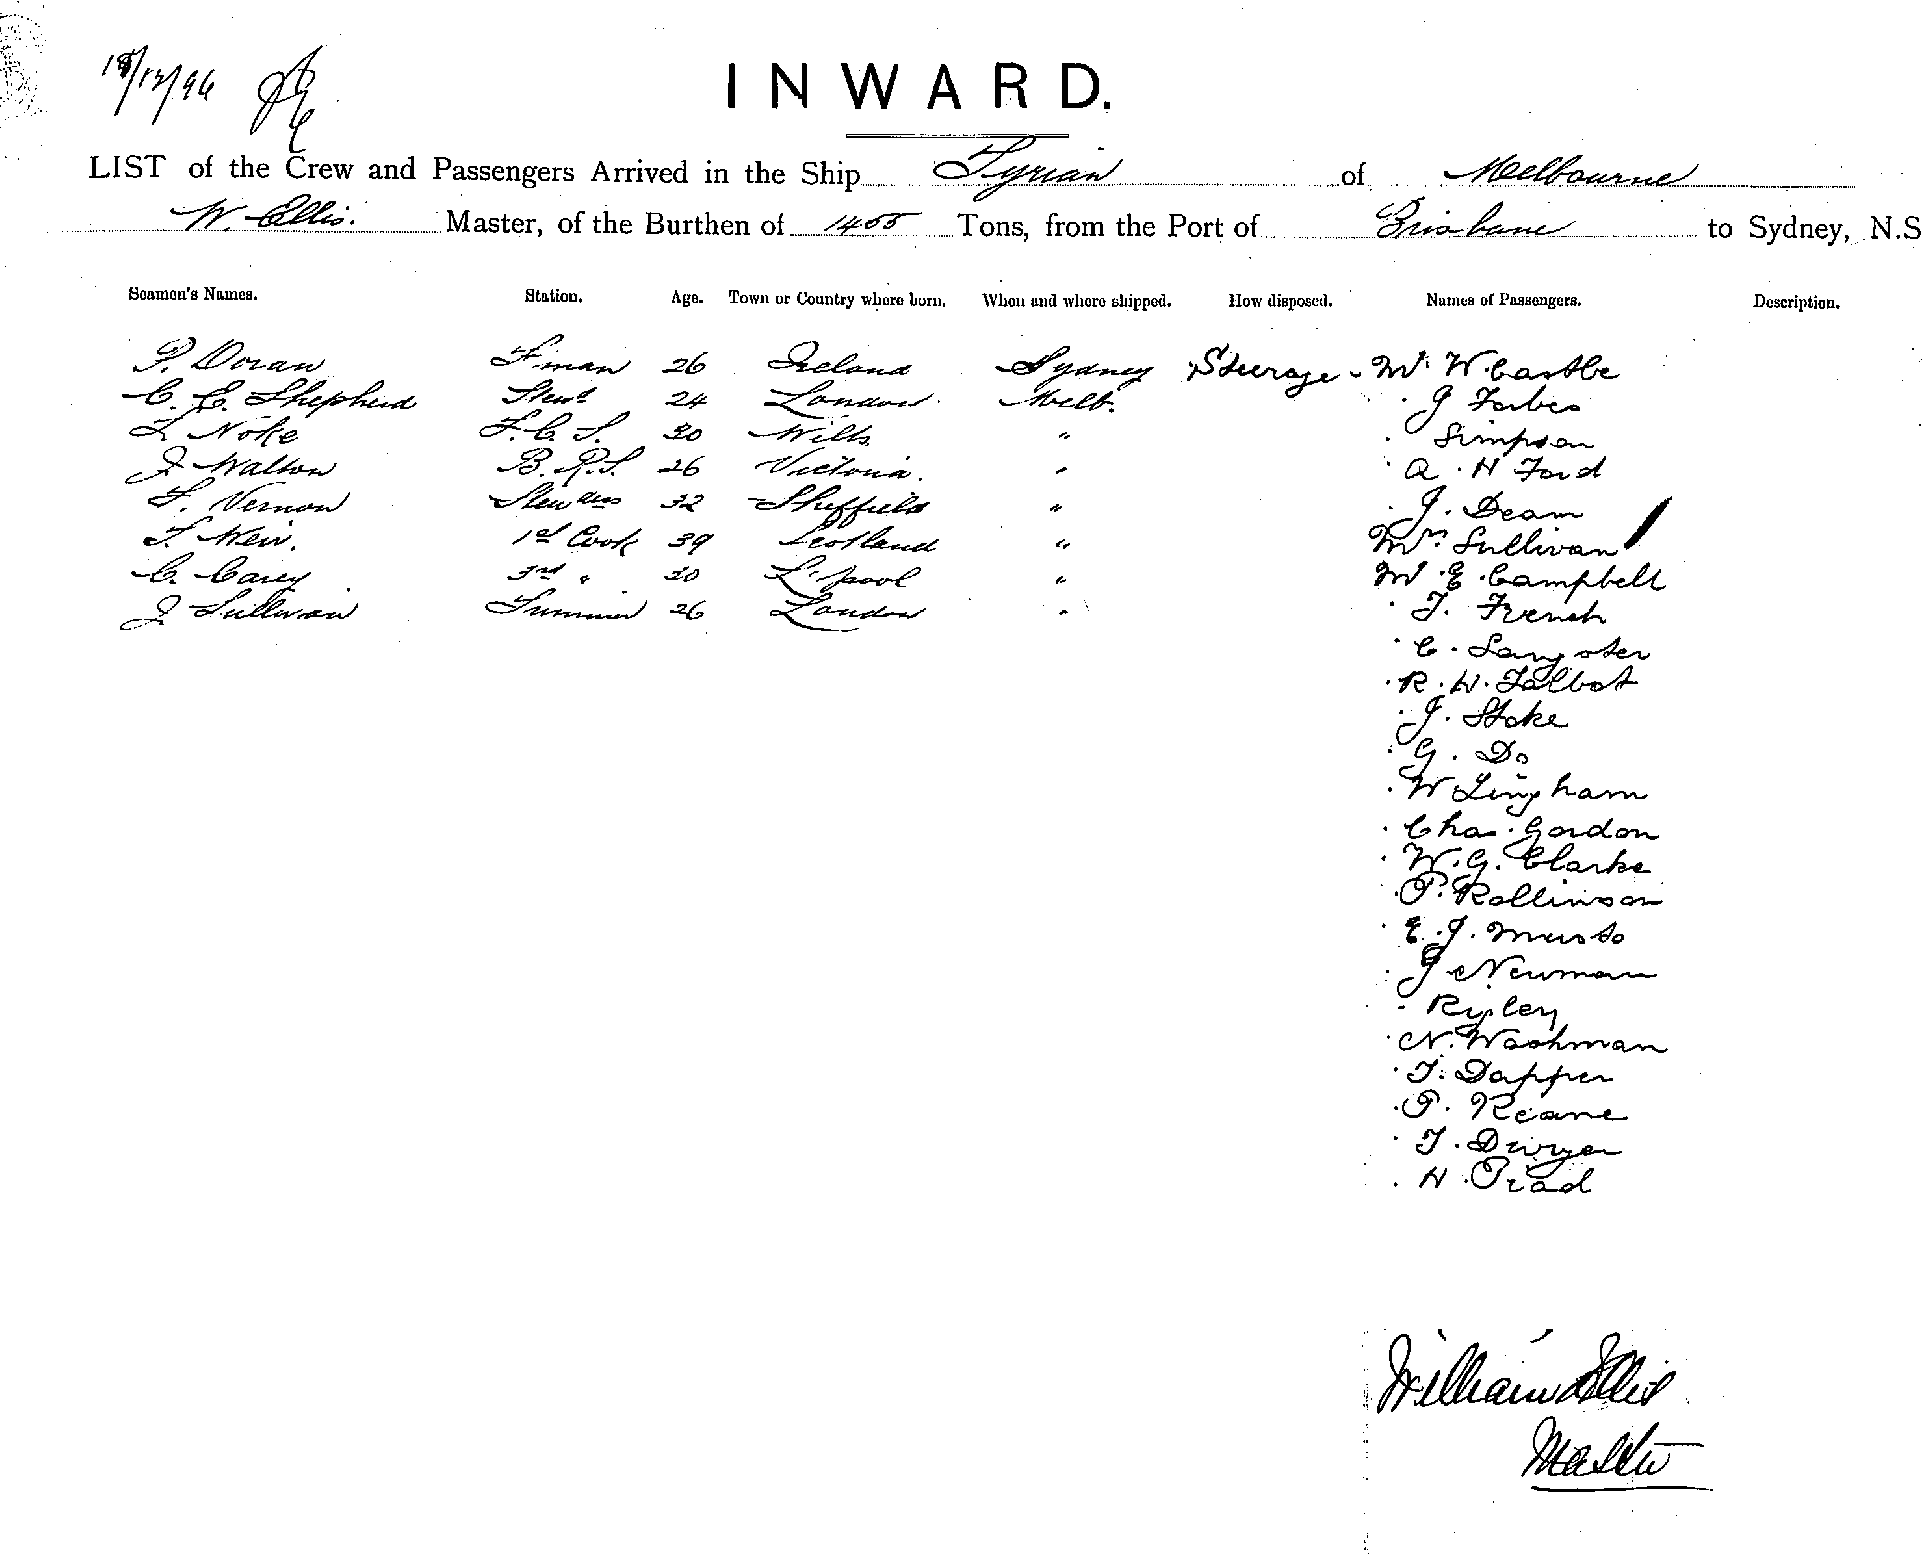 18/12/96
INWARD.
LIST of the Crew and Passengers Arrived in the Ship Tyrian of Melbourne
W. Ellis. Master, of the Burthen of 1455 Tons, from the Port of Brisbane to Sydney, N.S
Seamen's Names. Station. Age. Town or Country where born. When and where shipped. How disposed. Names of Passengers. Description.
P. Doran F'man 26 Ireland Sydney Steerage - Mr W Castle
C. E. Shepherd Stewd 24 London Melb. " G Forbes
L. Noke F.C.S. 30 Wilts " " Simpson
J. Walton B.R.S. 26 Victoria. " " A. H Ford
F. Vernon Stewdess 32 Sheffield " " J. Deam
T. Weir. 1st Cook 39 Scotland " Mrs Sullivan
C. Carey 3rd " 30 L'pool " Mr E. Campbell
J. Sullivan Trimmer 26 London " " T. French
" C. Sangster
" R. H. Talbot
" J. Stoke
" G. Do
" W Lingham
" Chas. Gordon
" W. G. Clarke
" P. Rollinson
" E. J. Musto
" J Newman
" Ryley
" N. Washman
" T. Dapper
" P. Keane
" T. Dwyer
" H. Prad
William Ellis
Master